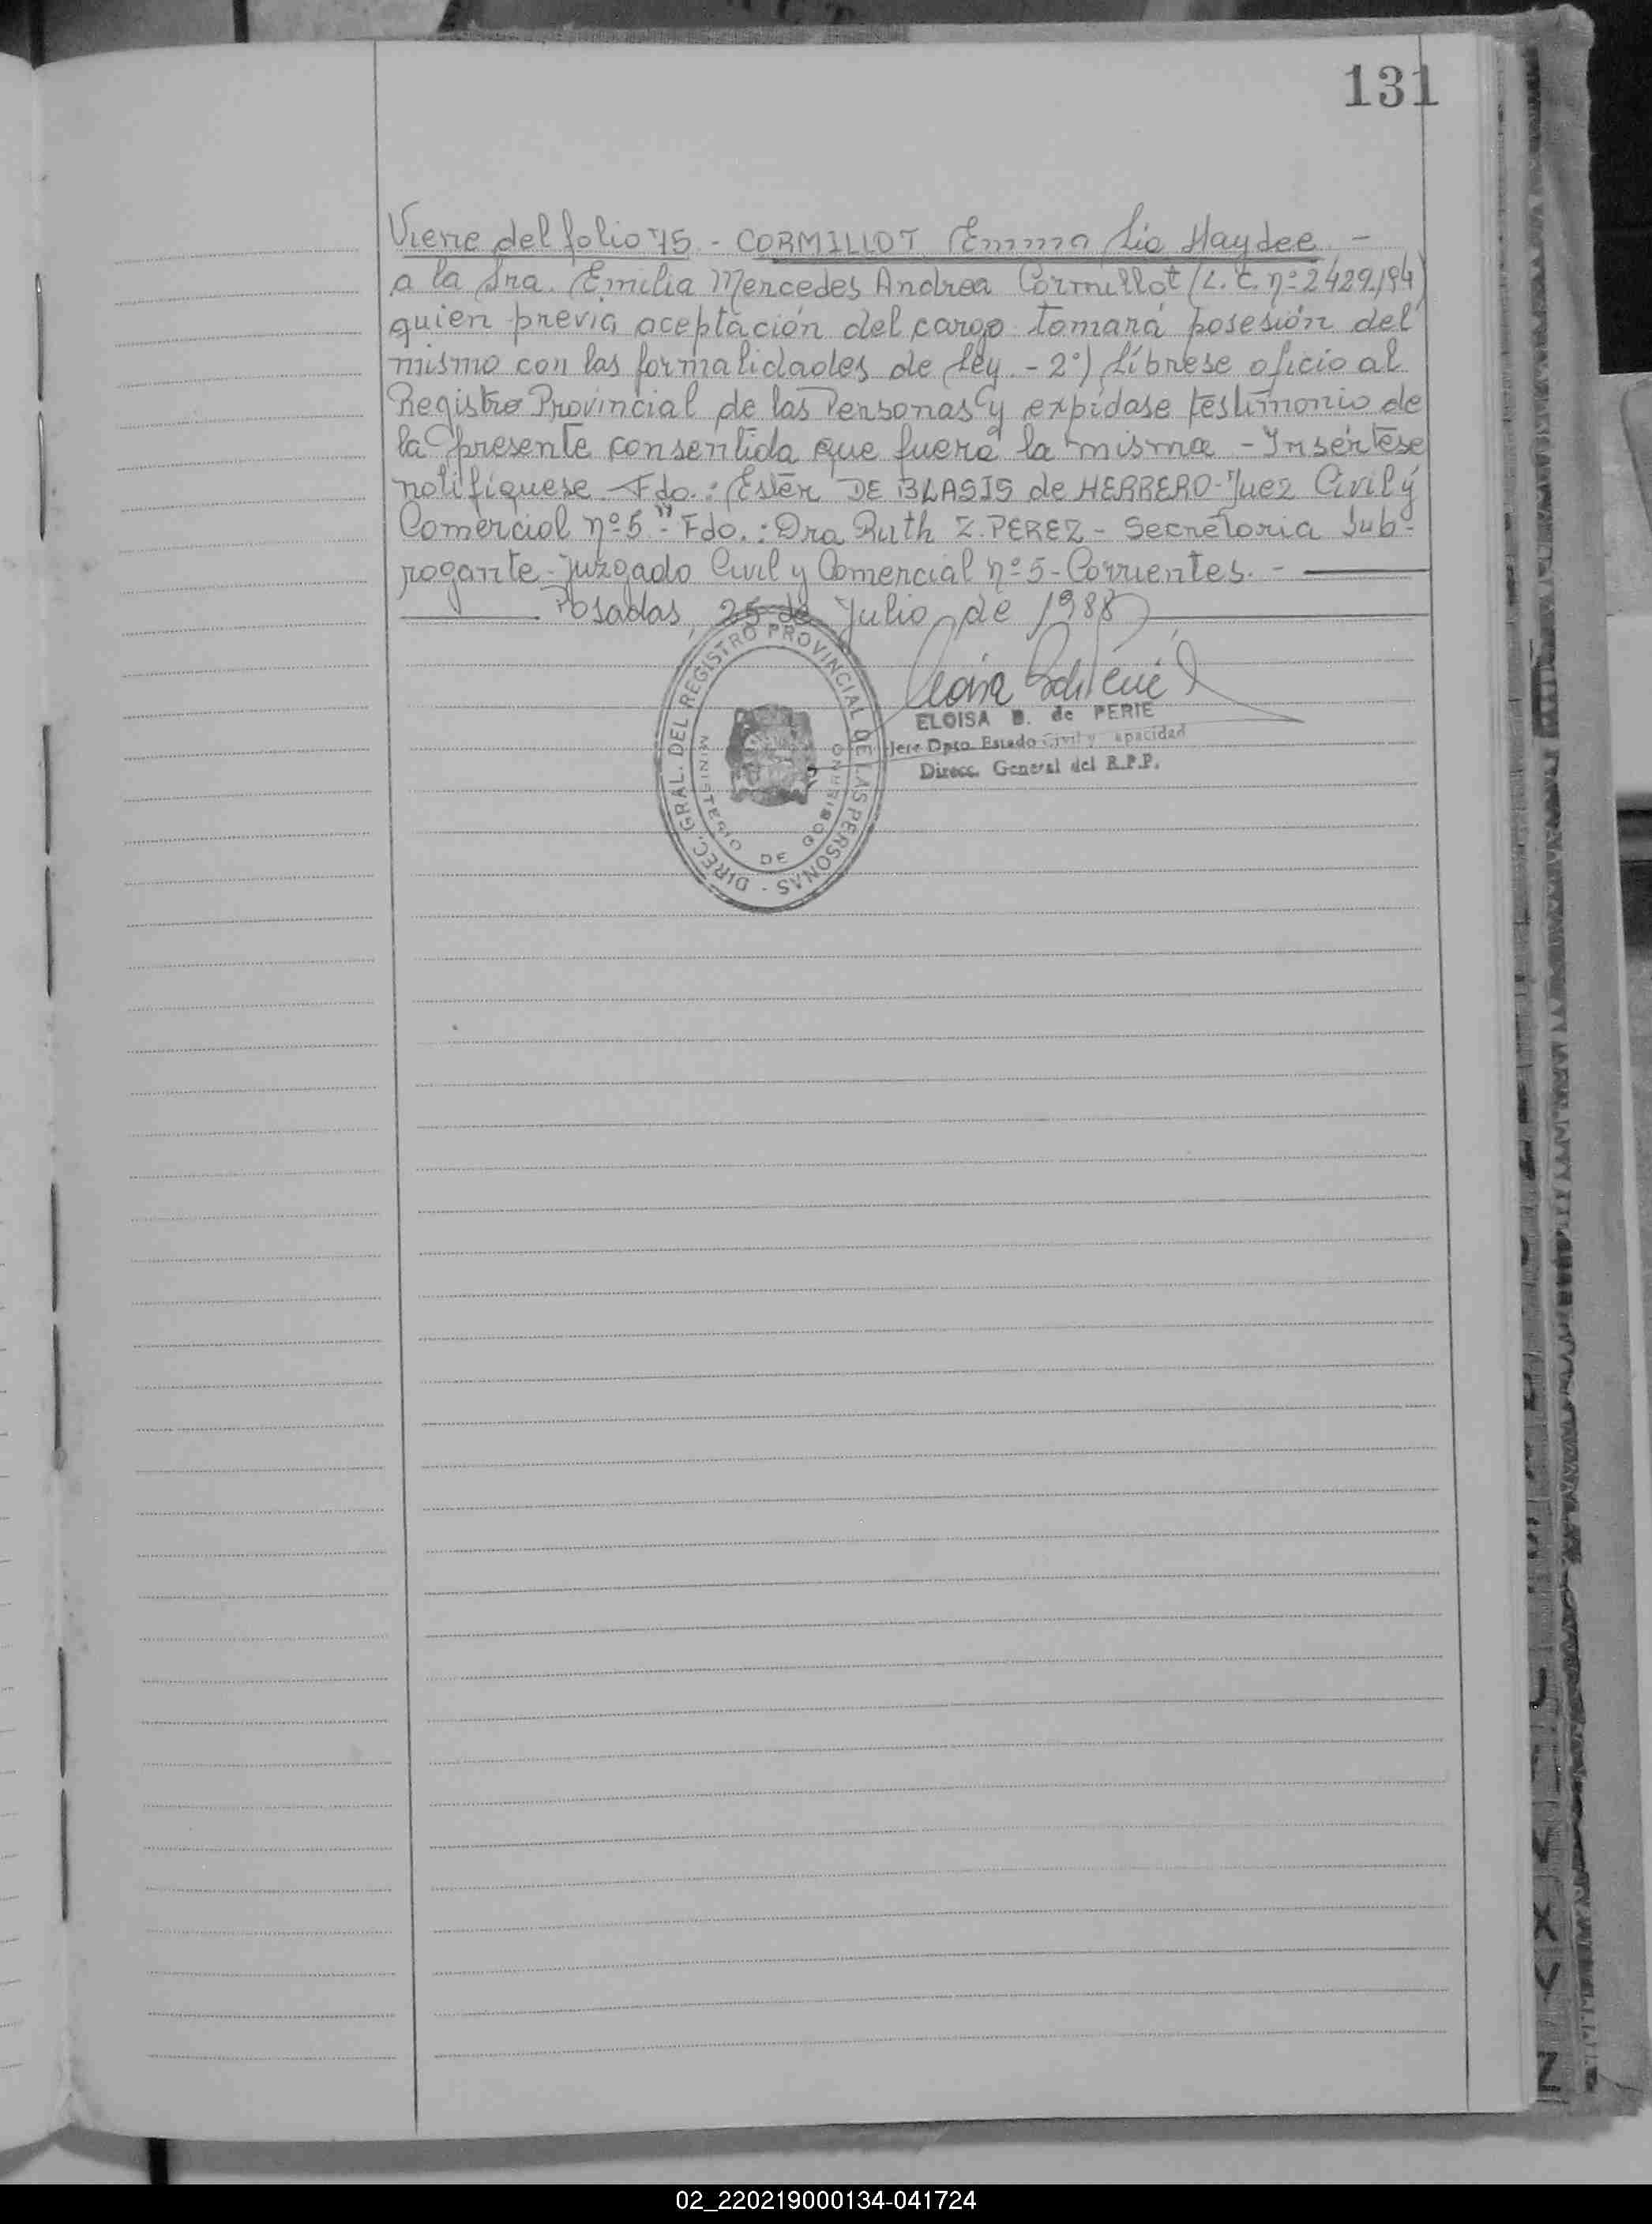 131
Viene del folio 75. - CORMILLOT Emma Lia Haydee. -
a la Sra. Emilia Mercedes Andrea Cormillot (L. C. nº 2429194)
quien previa aceptación del cargo tomará posesión del
mismo con las formalidades de Ley. - 2º) Líbrese oficio al
Registro Provincial de las Personas y expídase testimonio de
la presente consentida que fuera la misma - Insértese
notifíquese. Fdo.: Ester DE BLASIS de HERRERO - Juez Civil y
Comercial nº 5." Fdo.: Dra Ruth Z. PEREZ - Secretaria Sub-
rogante - Juzgado Civil y Comercial nº 5 - Corrientes. -
Posadas, 25 de Julio de 1988
DIREC. GRAL. DEL REGISTRO PROVINCIAL DE LAS PERSONAS -
MINISTERIO DE GOBIERNO
ELOISA B. de PERIE
Jefe Dpto. Estado Civil y Capacidad
Direcc. General del R.P.P.
02_220219000134-041724